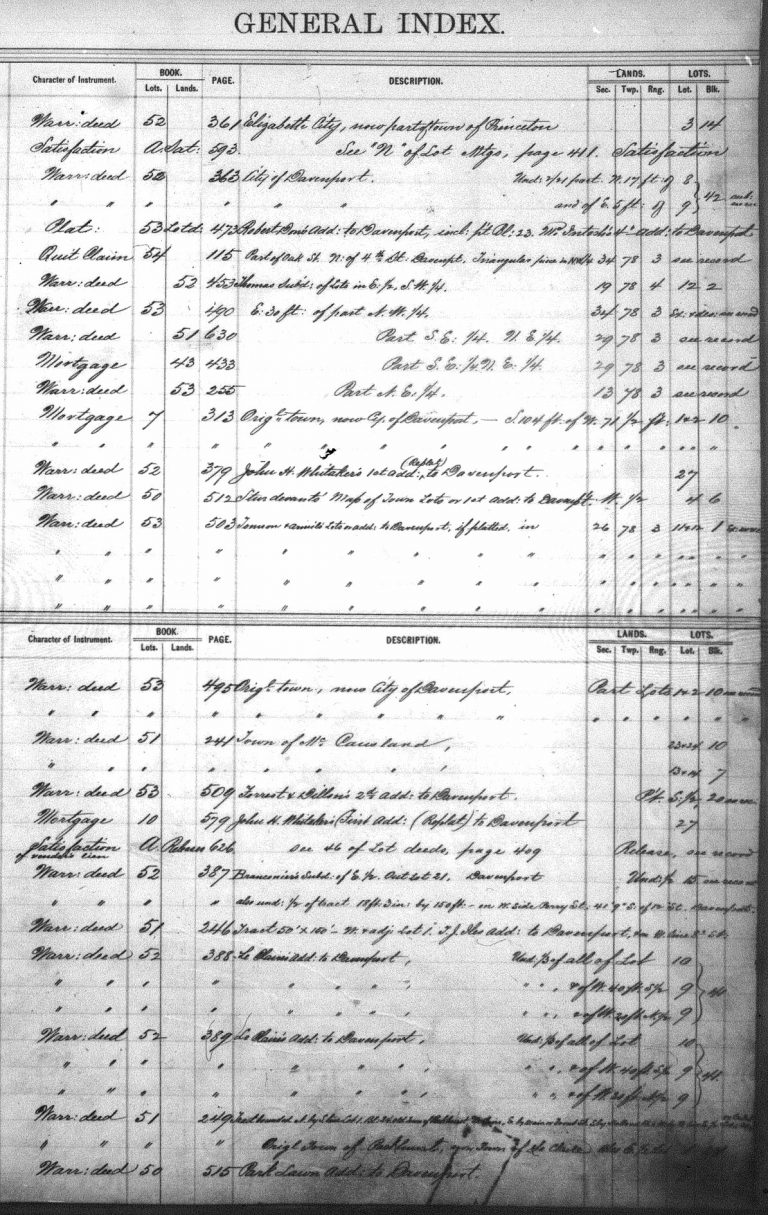 GENERAL INDEX.
Character of Instrument. BOOK. PAGE. DESCRIPTION. LANDS. LOTS.
Lots. Lands. Sec. Twp. Rng. Lot. Blk.
Warr: deed 52 361 Elizabeth City, now part of town of Princeton 3 14
Satisfaction A. Sat: 593 See "N" of Lot Mtgs, page 411. Satisfaction
Warr: deed 52 363 City of Davenport. Und: 2/21 part N. 17 ft: of 8
" " " " and of E. 5 ft: of 9 42
Plat: 53 Lot d: 473 Robert Add: to Davenport, incl: pt Bl: 23. Mc Intosh's 4th Add: to Davenport
Quit Claim 54 115 Part of Oak St. N: of 4th St. Davenpt, Triangular piece in 34 78 3 see record
Warr: deed 52 453 Thomas Subd: of Lots in E. 1/2, S. W. 1/4. 19 78 4 12 2
Warr: deed 53 490 E. 30 ft: of part N. W. 1/4. 34 78 3
Warr: deed 51 630 Part S. E. 1/4. N. E. 1/4. 29 78 3 see record
Mortgage 43 433 Part S. E. 1/4 N. E. 1/4. 29 78 3 see record
Warr: deed 53 255 Part N. E. 1/4. 13 78 3 see record
Mortgage 7 313 Orig: town, now Cy. of Davenport, — S. 104 ft. of W. 71 1/2 ft: 1+2 10
" " " " " " " " " " " " "
Warr: deed 52 379 John H. Whitaker's 1st Add: (Replat) to Davenport. 27
Warr: deed 50 512 Sturdevants' Map of Town Lots or 1st Add: to Davenpt. W. 1/2 4 6
Warr: deed 53 503 Lots or add: to Davenport, if platted in 26 78 3 11+12 1
" " " " " " " " " " " " "
" " " " " " " " " " " " "
" " " " " " " " " " " " "
Character of Instrument. BOOK. PAGE. DESCRIPTION. LANDS. LOTS.
Lots. Lands. Sec. Twp. Rng. Lot. Blk.
Warr: deed 53 495 Orig: town, now City of Davenport, Part Lots 1+2 10
" " " " " " " " " " " " "
Warr: deed 51 241 Town of Mc Causland, 23+24 10
" " " " " " " " 13+14 7
Warr: deed 53 509 Forrest & Dillon's 2d add: to Davenport. Pt. S. 1/2, 20
Mortgage 10 579 John H. Whitaker's (First Add: (Replat) to Davenport 27
Satisfaction A. Releases 626 see 46 of Lot deeds, page 409 Release, see record
of vendor's lien
Warr: deed 52 387 Subd: of E. 1/2 Out Lot 21, Davenport Und: 1/2 15 see record
" " " " also und: 1/2 of tract 18 ft. 3 in: by 150 ft. - on W. side Perry St. 41' 9" S. of 12th St. Davenport.
Warr: deed 51 246 Tract 50' x 150' W. & adj: Lot 1. T. J. Iles Add: to Davenport,
Warr: deed 52 388 Le Claire's Add: to Davenport, Und: 1/3 of all of Lot 10
" " " " " " " " " & of W. 40 ft. S. 1/2 9 41
" " " " " " " " " & of W. 20 ft. N. 1/2 9
Warr: deed 52 389 Le Claire's Add: to Davenport, Und: 1/3 of all of Lot 10
" " " " " " " " " & of W. 40 ft. S. 1/2 9 41
" " " " " " " " " & of W. 20 ft. N. 1/2 9
Warr: deed 51 249 Tract bounded N. by
" " " " Origl Town of Parkhurst, now Town of Le Claire
Warr: deed 50 515 Park Lawn Add: to Davenport.